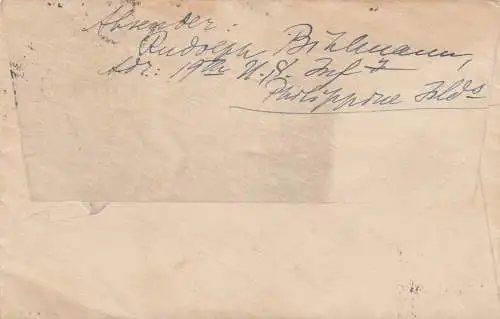 Absender:
Rudolph Bühlmann,
Adr: 19th U. St. Inf
Philippine Islds